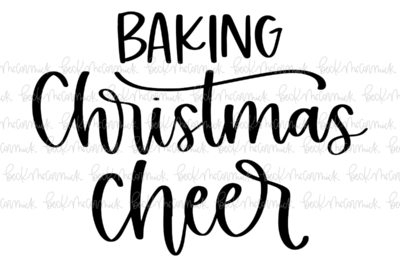 BAKING
Christmas
cheer